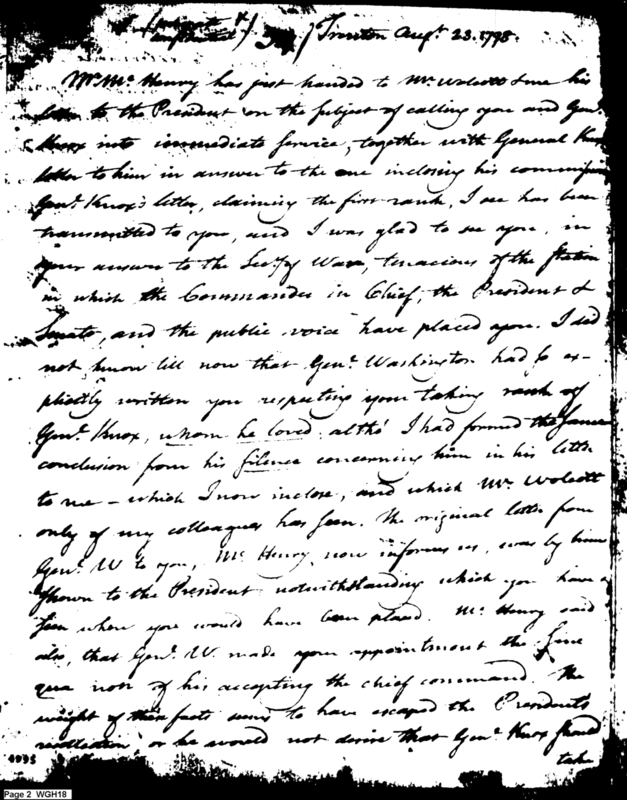 (private & confidential) Trenton Augt. 23. 1798.
Mr. McHenry has just handed to Mr. Wolcott & me his
letter to the President on the subject of calling you and Genl.
Knox into immediate service, together with General Knox's
letter to him in answer to the one inclosing his commission
Genl. Knox's letter, claiming the first rank, I see has been
transmitted to you, and I was glad to see you, in
your answer to the Secy. of War, tenacious of the station
in which the Commander in Chief, the President &
Senate, and the public voice have placed you. I did
not know till now that Genl. Washington had so ex-
plicitly written you respecting your taking rank of
Genl. Knox, whom he loved: altho' I had formed the same
conclusion from his silence concerning him in his letter
to me – which I now inclose, and which Mr. Wolcott
only of my colleagues has seen. The original letter from
Genl. W. to you, McHenry now informs us, was by him
shown to the President: notwithstanding which you have
seen where you would have been placed. McHenry said
also, that Genl. W. made your appointment the sine
qua non of his accepting the chief command. The
weight of these facts seems to have escaped the President's
recollection, or he would not desire that Genl. Knox should
take
4995
Page 2 WGH18